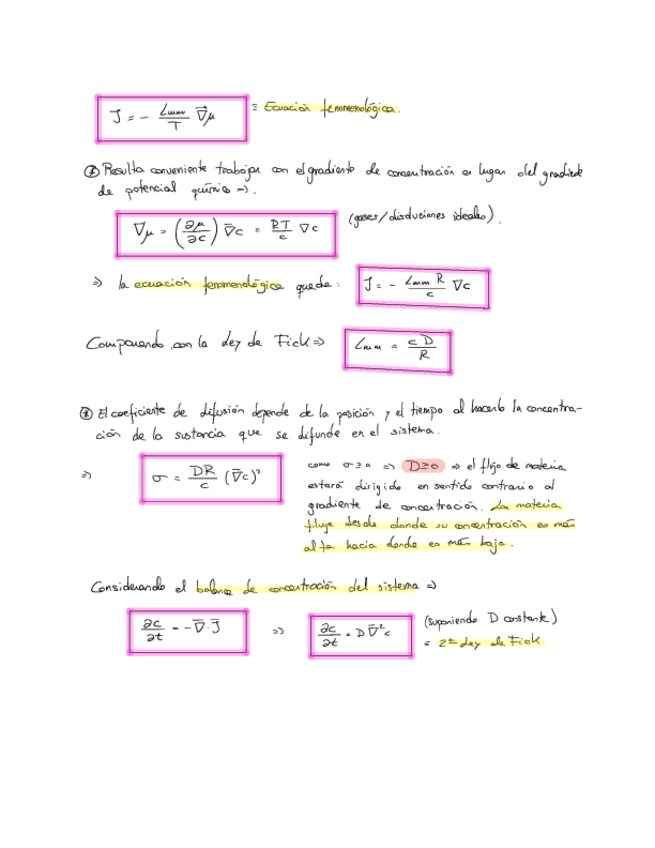 J = - Lmm/T ∇⃗μ ≡ Ecuación fenomenológica.
① Resulta conveniente trabajar con el gradiente de concentración en lugar del gradiente
de potencial químico ⇒.
∇μ = (∂μ/∂c) ∇̄c = RT/c ∇c (gases/disoluciones ideales).
⇒ la ecuación fenomenológica queda: J = - Lmm R/c ∇c
Comparando con la Ley de Fick ⇒ Lmm = cD/R
① El coeficiente de difusión depende de la posición y el tiempo al hacerlo la concentra-
ción de la sustancia que se difunde en el sistema.
⇒ σ = DR/c (∇̄c)² como σ≥0 ⇒ D≥0 ⇒ el flujo de materia
estará dirigido en sentido contrario al
gradiente de concentración. La materia
fluye desde donde su concentración es más
alta hacia donde es más baja.
Considerando el balance de concentración del sistema ⇒
∂c/∂t = -∇̄·J̄ ⇒ ∂c/∂t = D∇̄²c (suponiendo D constante)
= 2ª Ley de Fick